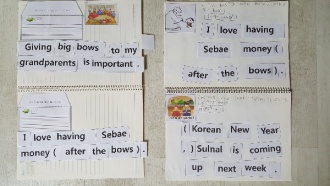 Giving big bows to my
grandparents is important.
I love having
Sebae money (
after the bows ) .
I love having Sebae
money ( after the bows ) .
( Korean New Year
. ) Sulnal is coming
up next week .